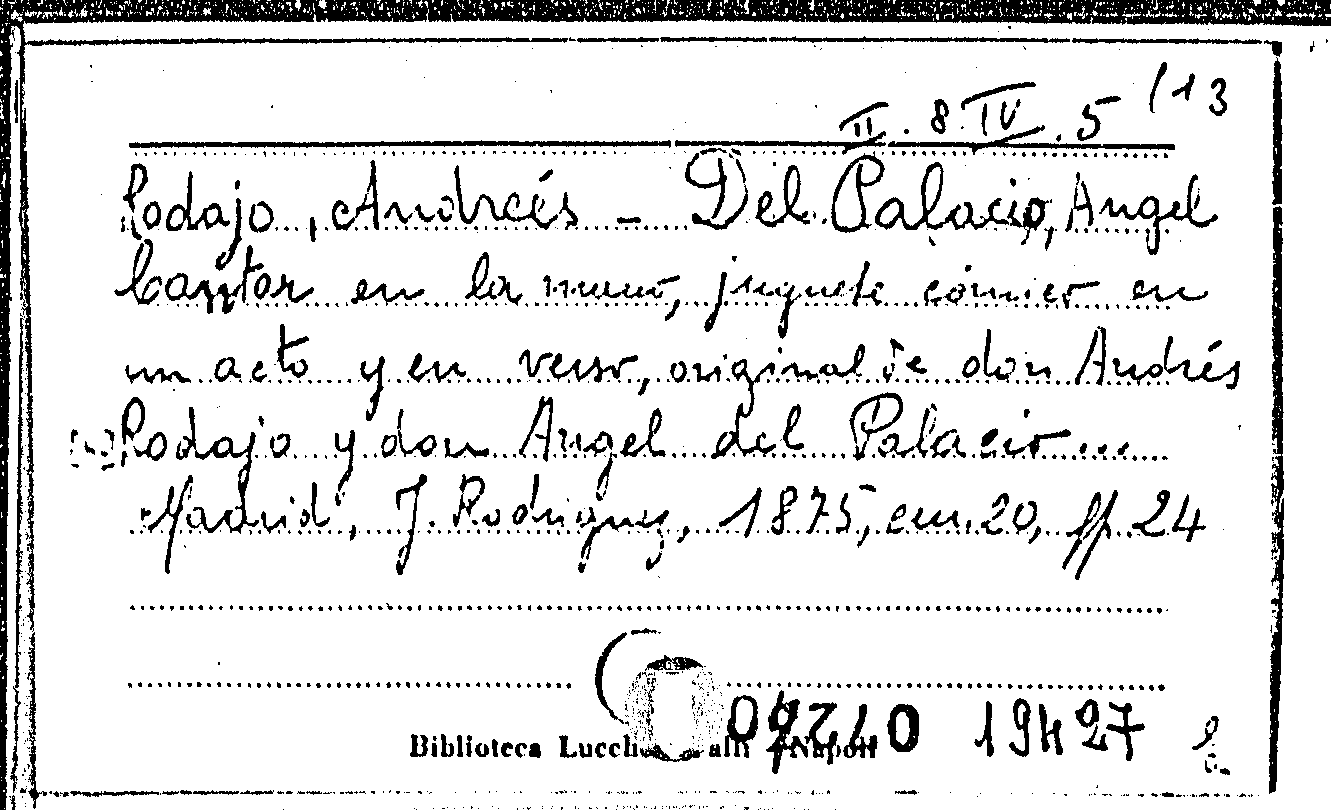 II. 8. IV. 5 /13
Rodajo, Andrés - Del Palacio, Angel
Cantar en la mano, juguete cómico en
un acto y en verso, original de don Andrés
Rodajo y don Angel del Palacio...
Madrid, J. Rodriguez, 1875, cm. 20, pp. 24
19427
Biblioteca Napoli